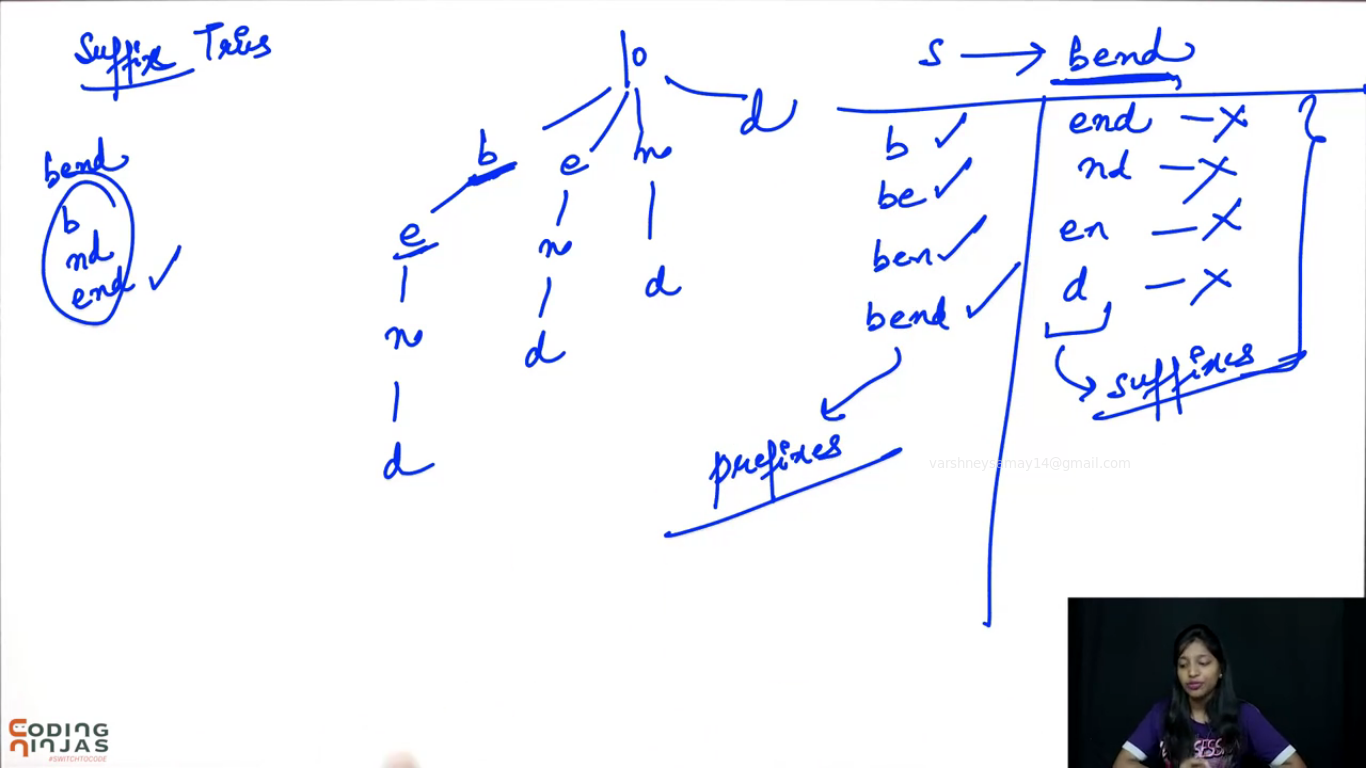 Suffix Tries
bend
b
nd
end ✓
\0
b e n d
e n d
n d
d
S → bend
b ✓
be ✓
ben ✓
bend ✓
prefixes
end - X
nd - X
en - X
d - X
suffixes
varshneysamay14@gmail.com
CODING
NINJAS
#SWITCHTOCODE